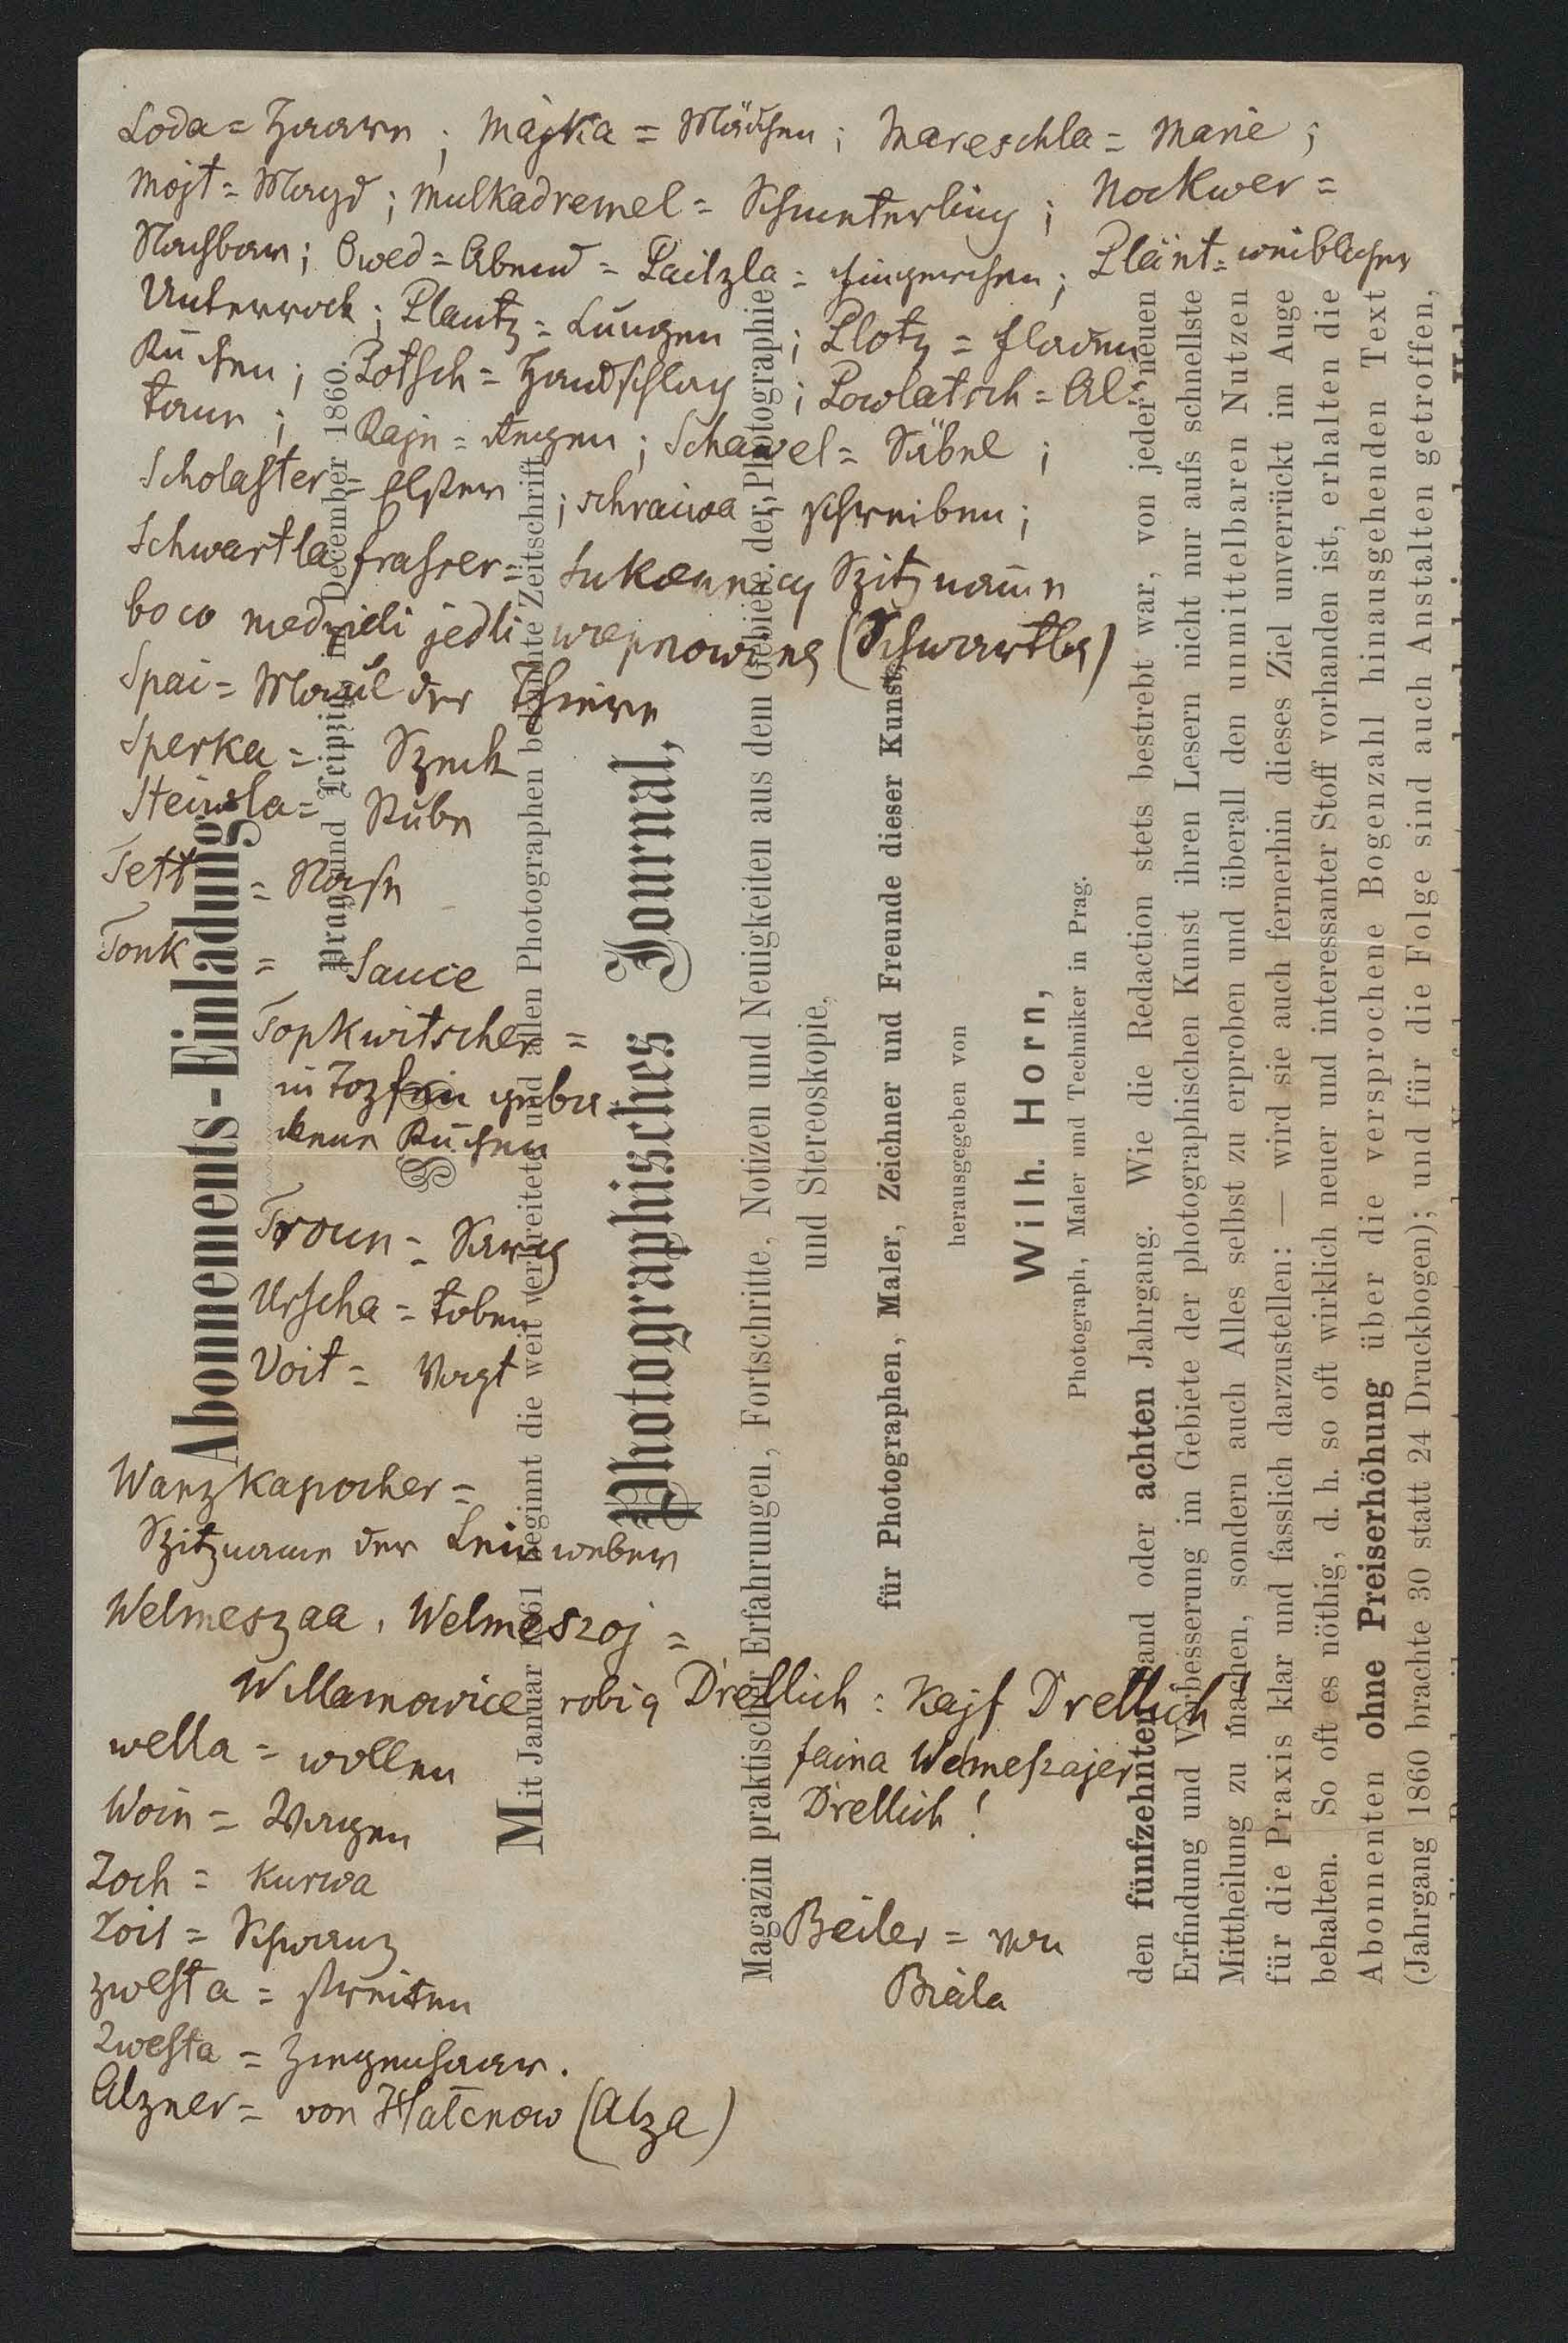 Loda = Haare ; Májka = Mädchen ; Mareschla = Marie ;
Mojt = Magd ; Mulkadremel = Schmetterling ; Nockwer =
Nachbar ; Owed = Abend = Paitzla = ; Plänt = weiblicher
Unterrock ; Plautz = Lungen ; Plotz = Fladen
Kuchen ; Potsch = Handschlag ; Powlatsch = Al-
tane ; Rajn = Regen ; Schawel = Säbel ;
Scholaster = Elster ; schraiwa = schreiben ;
Schwartlafrasser = Sukennicy Spitzname
bo co niedzieli jedli wieprzowinę (Schwartla)
Spai = Maul der Thiere
Sperka = Speck
Steiwla = Stube
Tett = 
Tonk = Sauce
Topkwitscher =
in Topfen geba-
ckener Kuchen
Troun = Sarg
Urscha = toben
Voit = Vogt
Wanzkapocher =
Spitzname der Leinweber
Welmeszaa, Welmeszoj =
Willamowice robią Drellich : Kajf Drellich
faina Welmeszajer
Drellich !
wella = wollen
Woin = Wagen
Zoch = Kurwa
Zoil = Schwanz
zwesta = streiten
Zwesta = Ziegenhaar.
Beiler = von
Biala
Alzner = von Hałcnow (Alza)
Abonnements-Einladung.
Prag und Leipzig im December 1860.
Mit Januar 1861 beginnt die weit verbreitete und allen Photographen bekannte Zeitschrift
Photographisches Journal,
Magazin praktischer Erfahrungen, Fortschritte, Notizen und Neuigkeiten aus dem Gebiete der Photographie
und Stereoskopie,
für Photographen, Maler, Zeichner und Freunde dieser Kunst,
herausgegeben von
Wilh. Horn,
Photograph, Maler und Techniker in Prag.
den fünfzehnten Band oder achten Jahrgang. Wie die Redaction stets bestrebt war, von jeder neuen
Erfindung und Verbesserung im Gebiete der photographischen Kunst ihren Lesern nicht nur aufs schnellste
Mittheilung zu machen, sondern auch Alles selbst zu erproben und überall den unmittelbaren Nutzen
für die Praxis klar und fasslich darzustellen: — wird sie auch fernerhin dieses Ziel unverrückt im Auge
behalten. So oft es nöthig, d. h. so oft wirklich neuer und interessanter Stoff vorhanden ist, erhalten die
Abonnenten ohne Preiserhöhung über die versprochene Bogenzahl hinausgehenden Text
(Jahrgang 1860 brachte 30 statt 24 Druckbogen); und für die Folge sind auch Anstalten getroffen,